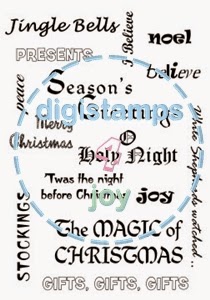 Jingle Bells
I Believe
noel
PRESENTS
believe
peace
Season's
Greetings
digistamps
Merry
Christmas
O
Holy Night
While Shepherds watched...
'Twas the night
before Christmas
joy
joy
STOCKINGS
The MAGIC of
CHRISTMAS
GIFTS, GIFTS, GIFTS